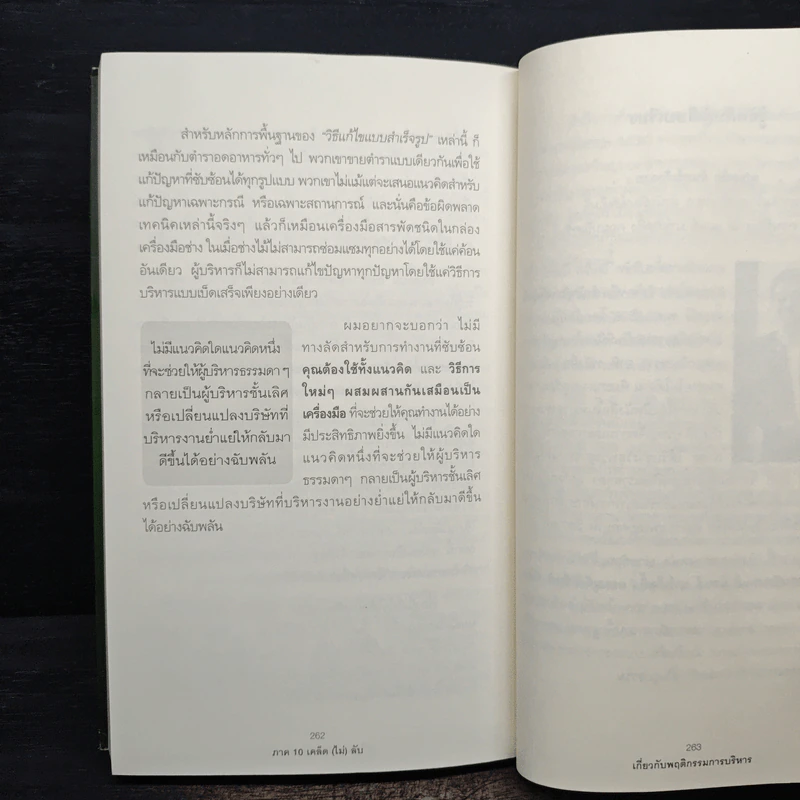 สำหรับหลักการพื้นฐานของ "วิธีแก้ไขแบบสำเร็จรูป" เหล่านี้ ก็
เหมือนกับตำราอดอาหารทั่วๆ ไป พวกเขาขายตำราแบบเดียวกันเพื่อใช้
แก้ปัญหาที่ซับซ้อนได้ทุกรูปแบบ พวกเขาไม่แม้แต่จะเสนอแนวคิดสำหรับ
แก้ปัญหาเฉพาะกรณี หรือเฉพาะสถานการณ์ และนั่นคือข้อผิดพลาด
เทคนิคเหล่านี้จริงๆ แล้วก็เหมือนเครื่องมือสารพัดชนิดในกล่อง
เครื่องมือช่าง ในเมื่อช่างไม้ไม่สามารถซ่อมแซมทุกอย่างได้โดยใช้แค่ค้อน
อันเดียว ผู้บริหารก็ไม่สามารถแก้ไขปัญหาทุกปัญหาโดยใช้แค่วิธีการ
บริหารแบบเบ็ดเสร็จเพียงอย่างเดียว
ไม่มีแนวคิดใดแนวคิดหนึ่ง
ที่จะช่วยให้ผู้บริหารธรรมดาๆ
กลายเป็นผู้บริหารชั้นเลิศ
หรือเปลี่ยนแปลงบริษัทที่
บริหารงานย่ำแย่ให้กลับมา
ดีขึ้นได้อย่างฉับพลัน
ผมอยากจะบอกว่า ไม่มี
ทางลัดสำหรับการทำงานที่ซับซ้อน
คุณต้องใช้ทั้งแนวคิด และ วิธีการ
ใหม่ๆ ผสมผสานกันเสมือนเป็น
เครื่องมือ ที่จะช่วยให้คุณทำงานได้อย่าง
มีประสิทธิภาพยิ่งขึ้น ไม่มีแนวคิดใด
แนวคิดหนึ่งที่จะช่วยให้ผู้บริหาร
ธรรมดาๆ กลายเป็นผู้บริหารชั้นเลิศ
หรือเปลี่ยนแปลงบริษัทที่บริหารงานอย่างย่ำแย่ให้กลับมาดีขึ้น
ได้อย่างฉับพลัน
262
ภาค 10 เคล็ด (ไม่) ลับ
263
เกี่ยวกับพฤติกรรมการบริหาร